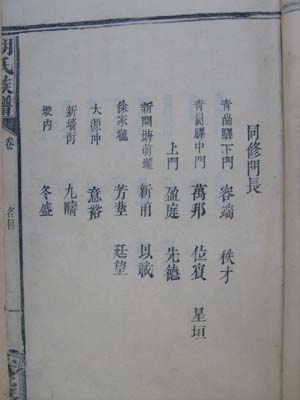 同修門長
青崗驛下門 容端 秩才
青崗驛中門 萬那 位寶 星垣
上門 盈庭 先德
新開塘 新甫 以載
徐家壠 芳華 廷望
大源冲 意裕
新墻街 九疇
塅內 冬盛
胡氏族譜
卷
名目